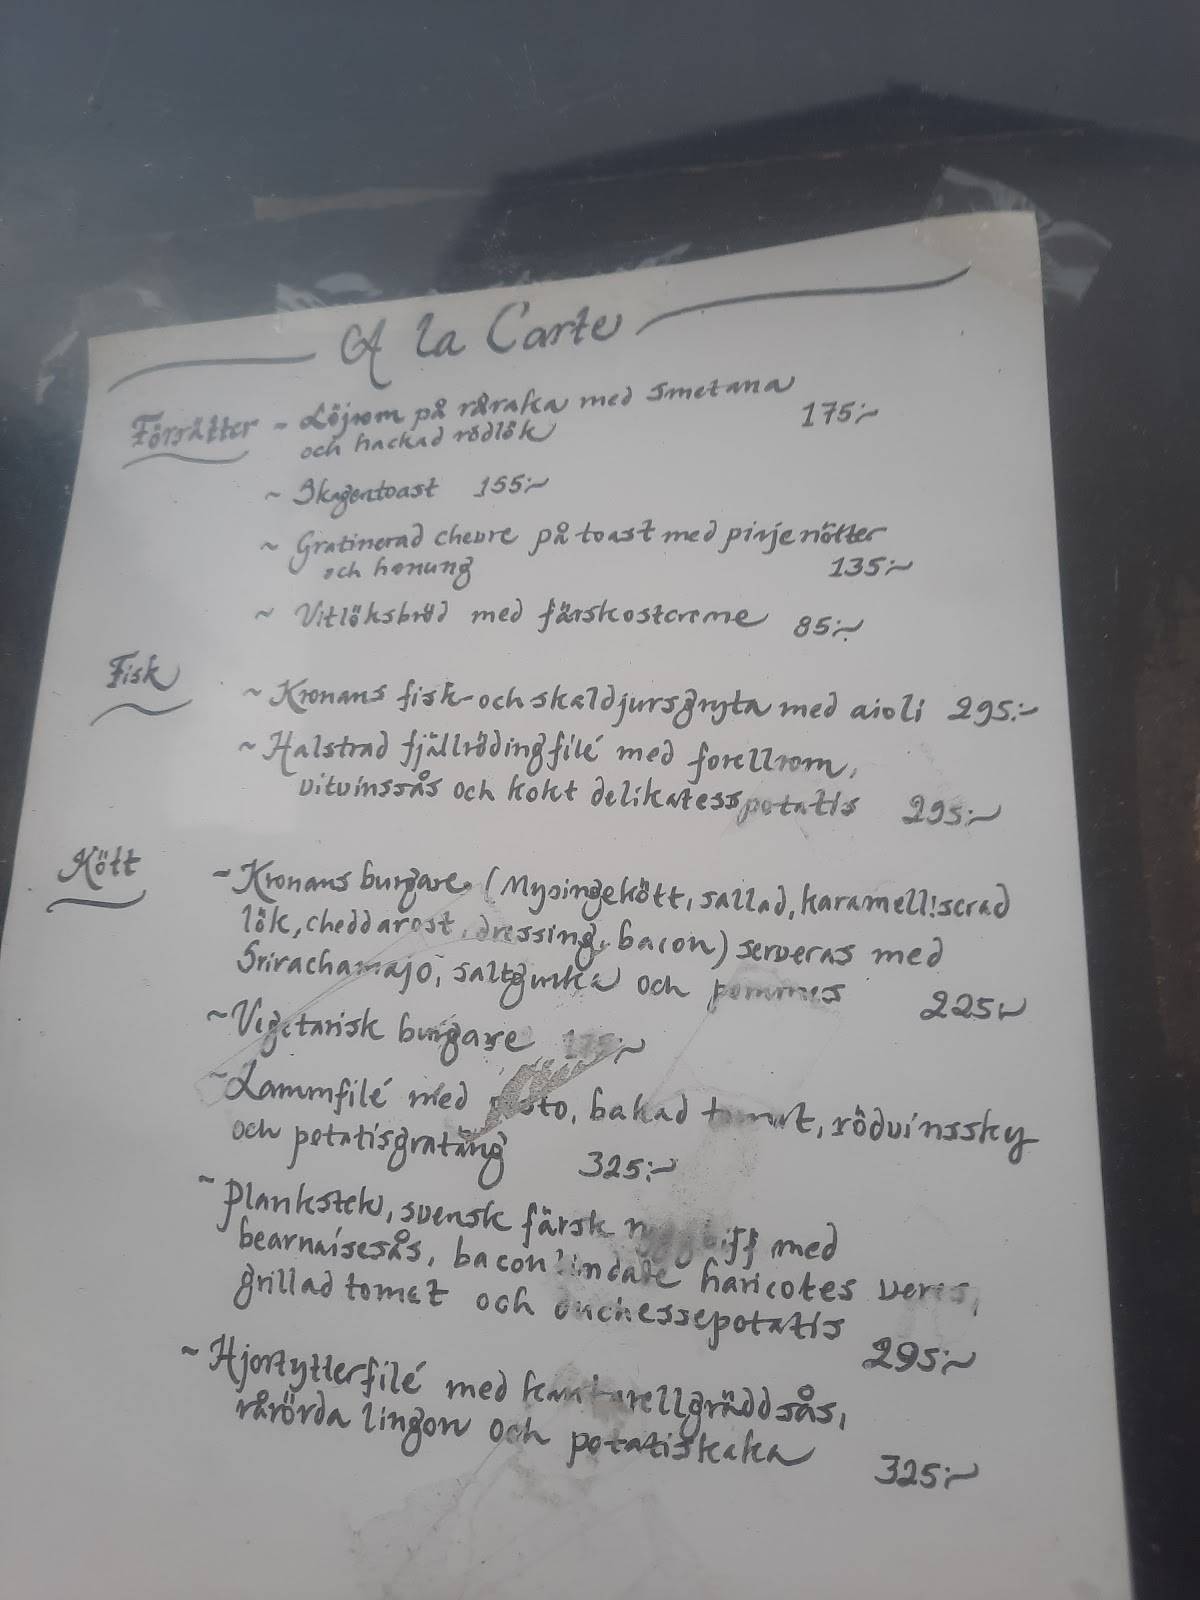 A la Carte
Förrätter ~ Löjrom på råraka med smetana
och hackad rödlök 175:~
~ Skagentoast 155:~
~ Gratinerad chevre på toast med pinjenötter
och honung 135:~
~ Vitlöksbröd med färskostcreme 85:~
Fisk
~ Kronans fisk-och skaldjursgryta med aioli 295:~
~ Halstrad fjällrödingfilé med forellrom,
vitvinssås och kokt delikatesspotatis 295:~
Kött
~ Kronans burgare (Mysingekött, sallad, karamelliserad
lök, cheddarost, dressing, bacon) serveras med
Srirachamajo, saltgurka och pommes 225:~
~ Vegetarisk burgare 175:~
~ Lammfilé med pesto, bakad tomat, rödvinssky
och potatisgratäng 325:~
~ Plankstek, svensk färsk ryggbiff med
bearnaisesås, baconlindade haricotes veres,
grillad tomat och duchessepotatis 295:~
~ Hjortytterfilé med kantarellgräddsås,
rårörda lingon och potatiskaka 325:~